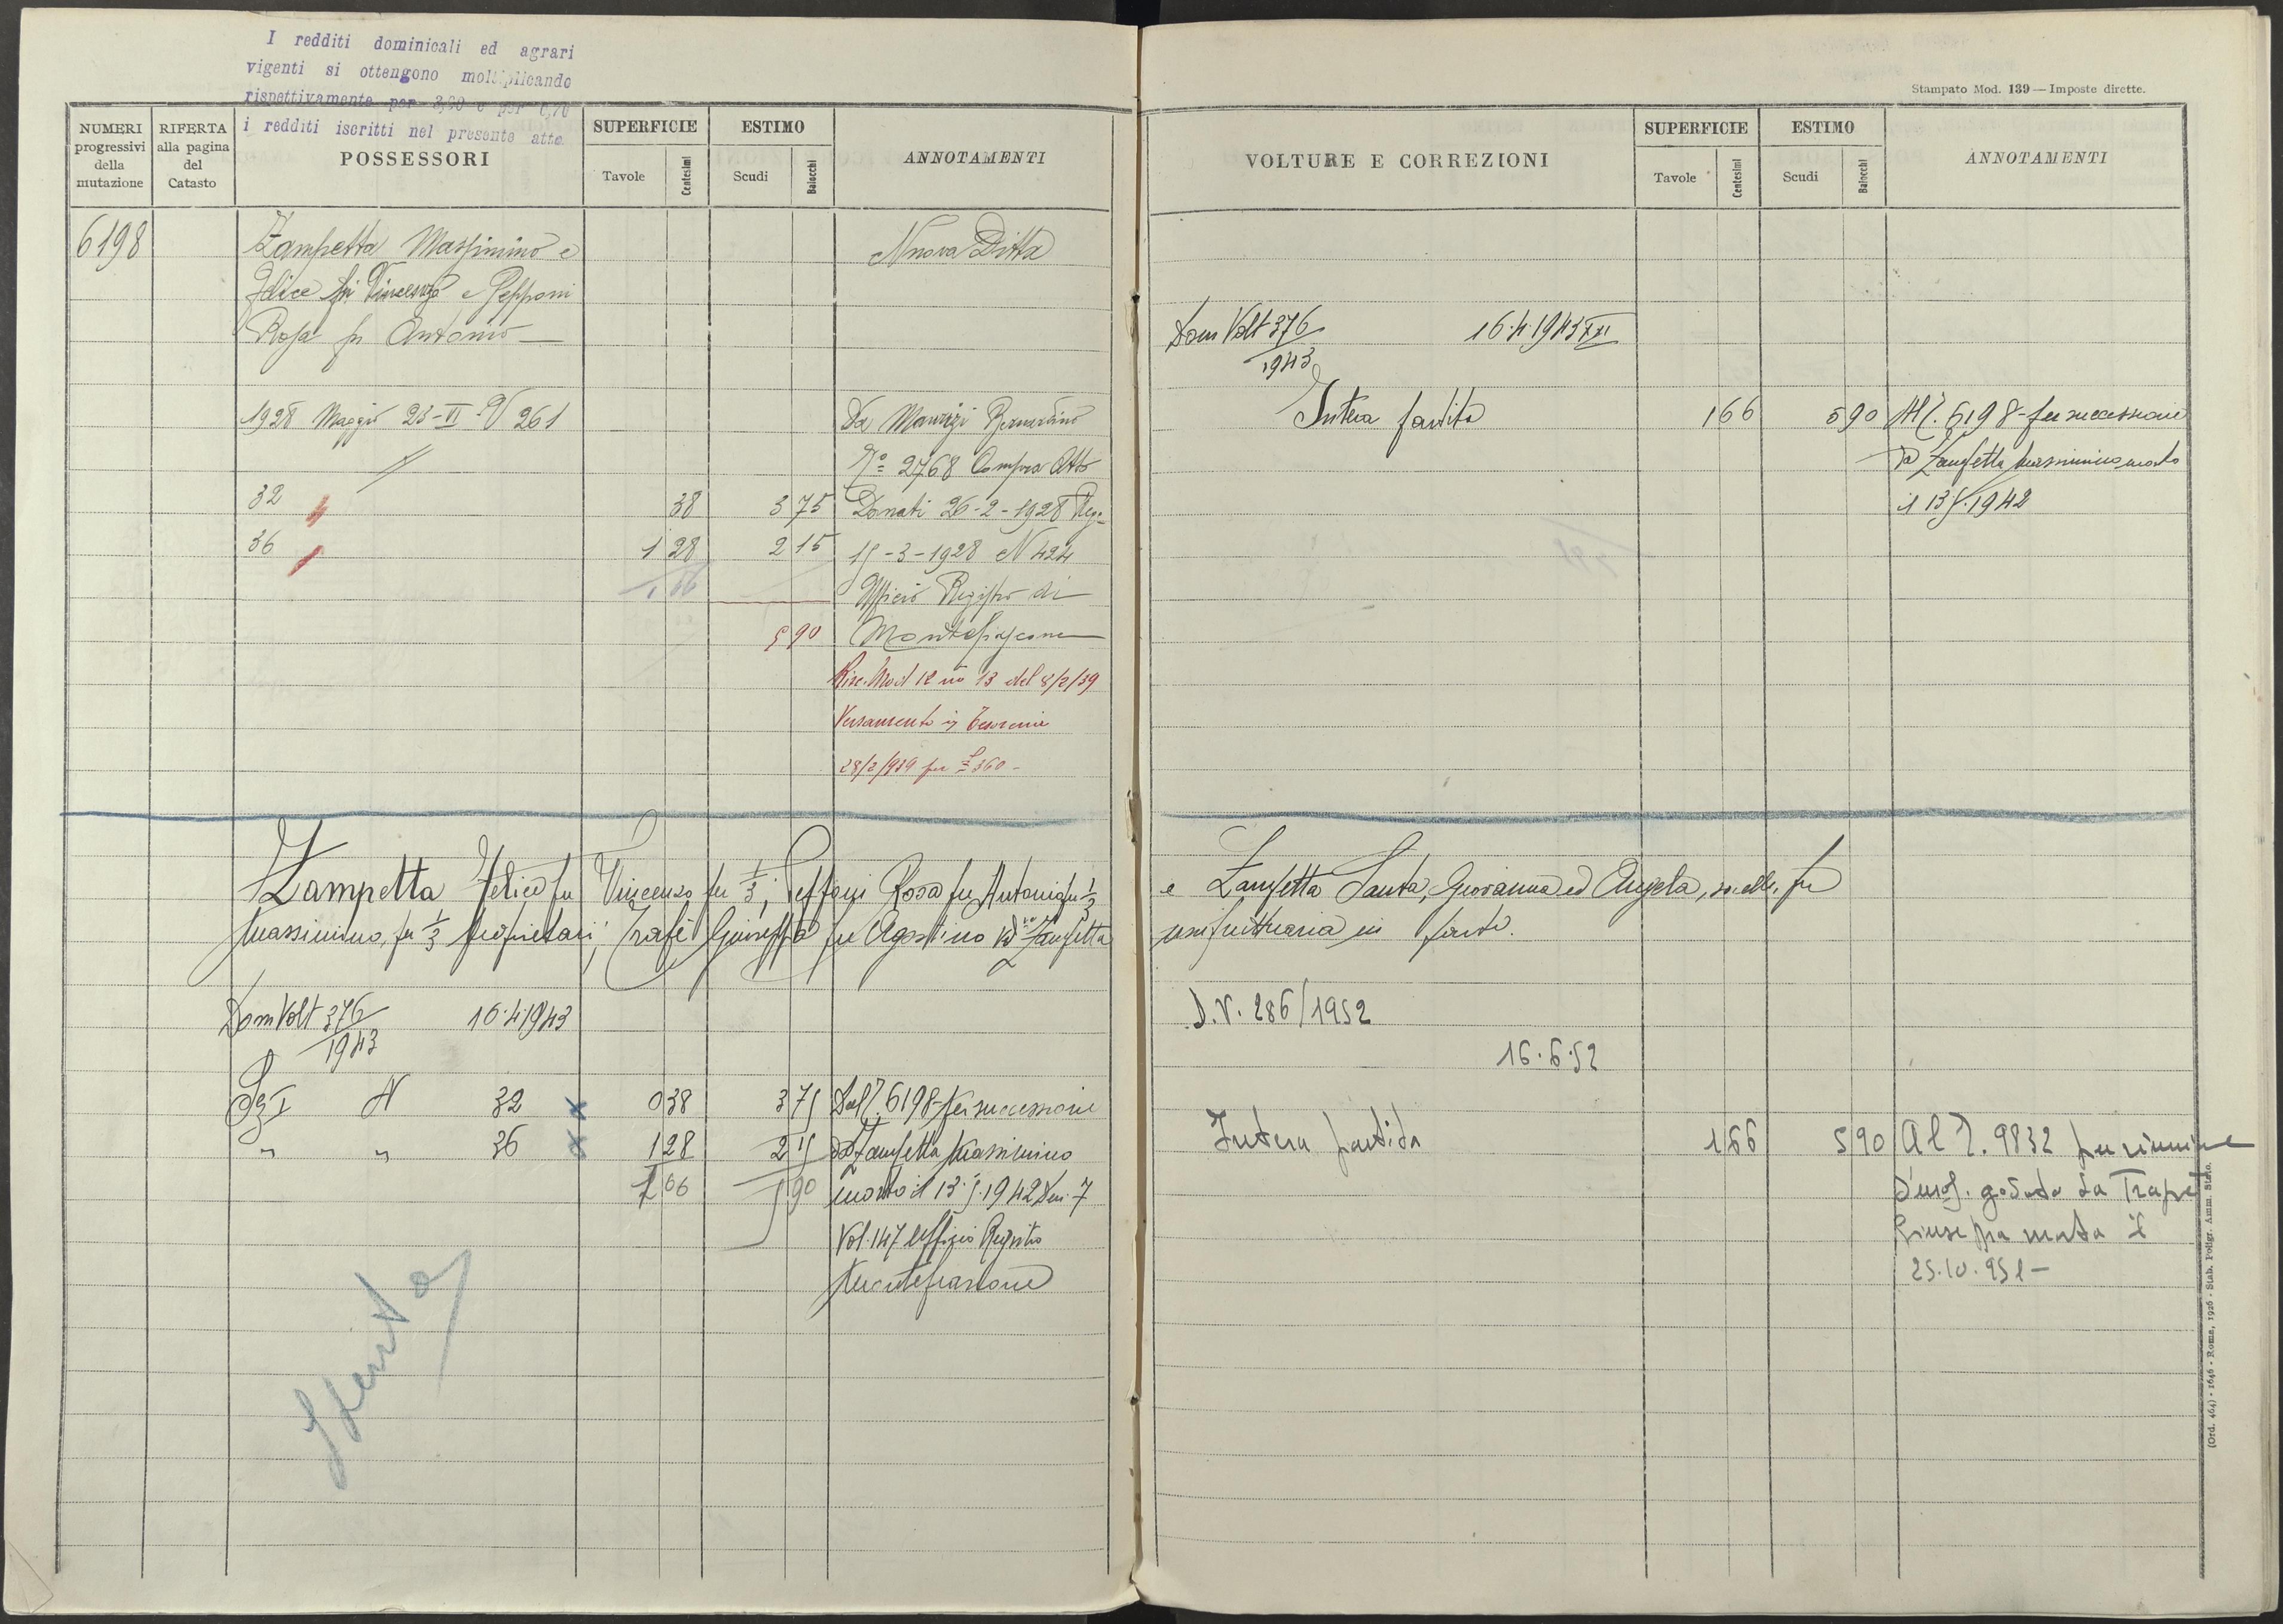 I redditi dominicali ed agrari
vigenti si ottengono moltiplicando
rispettivamente per e per
i redditi iscritti nel presente atto
NUMERI progressivi della mutazione
RIFERTA alla pagina del Catasto
POSSESSORI
SUPERFICIE
Tavole Centesimi
ESTIMO
Scudi Baiocchi
ANNOTAMENTI
6198
Zampetta Massimino e
Felice fu Vincenzo e Pepponi
Rosa fu Antonio
Nuova Ditta
1928 Maggio 23-VI-V 261
Da Maurizi Bernardino
No 2768 Compra Atto
32 38 3 75 Donati 26-2-1928 Reg.
36 1 28 2 15 15-3-1928 N 424
1 66 Ufficio Registro di
5 90 Montefiascone
Risc. Mod 12 no 13 del 8/2/39
Versamento in Tesoreria
28/2/939 per £ 360-
Zampetta Felice fu Vincenzo per 1/3; Pepponi Rosa fu Antonio per 1/3
Massimino, per 1/3 proprietari; Trapè Giuseppa fu Agostino ved. Zampetta
Dom Volt 376/1943 16.4.1943
Sez I N 32 0 38 3 75 Dal P. 6198 per successione
" " 36 1 28 2 15 di Zampetta Massimino
1 66 5 90 morto il 13.5.1942 Den. 7
Vol. 147 Uffizio Registro
Montefiascone
Stampato Mod. 139 — Imposte dirette.
VOLTURE E CORREZIONI
SUPERFICIE
Tavole Centesimi
ESTIMO
Scudi Baiocchi
ANNOTAMENTI
Dom Volt 376/1943 16.4.1943 XXI
Intera partita 1 66 5 90 Al P. 6198 per successione
di Zampetta Massimino morto
il 13.5.1942
e Zampetta Santa, Giovanna ed Angela, sorelle, fu
usufruttuaria in parte.
D.V. 286/1952
16.6.52
Intera partita 1 66 5 90 Al P. 9832 per riunione
d'usuf. goduto da Trapè
Giuseppa morta il
25.10.951-
(Ord. 464) - 1646 - Roma, 1926 - Stab. Poligr. Amm. Stato.